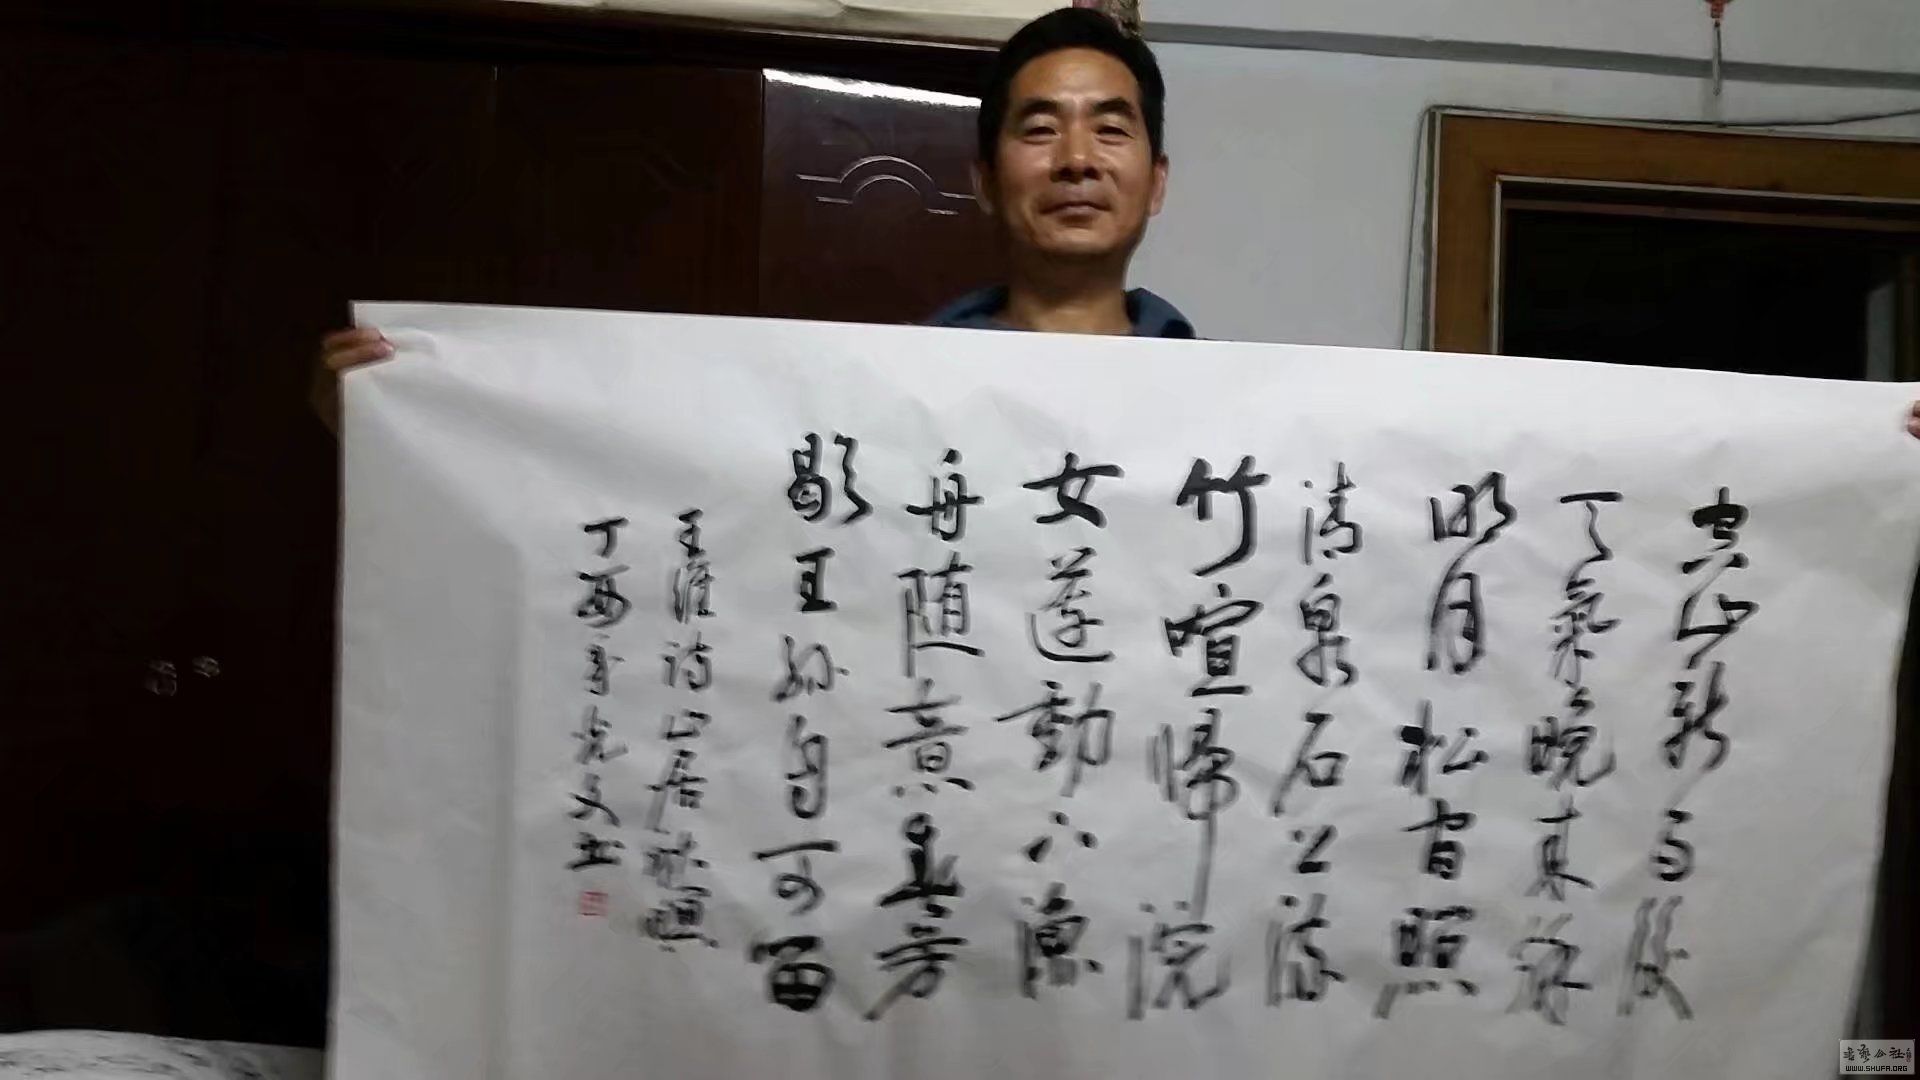 空山新雨後
天氣晚来秋
明月松间照
清泉石上流
竹喧歸浣
女莲動下漁
舟随意春芳
歇王孙自可留
王维诗山居秋暝
丁酉书
书艺公社
WWW.SHUFA.ORG